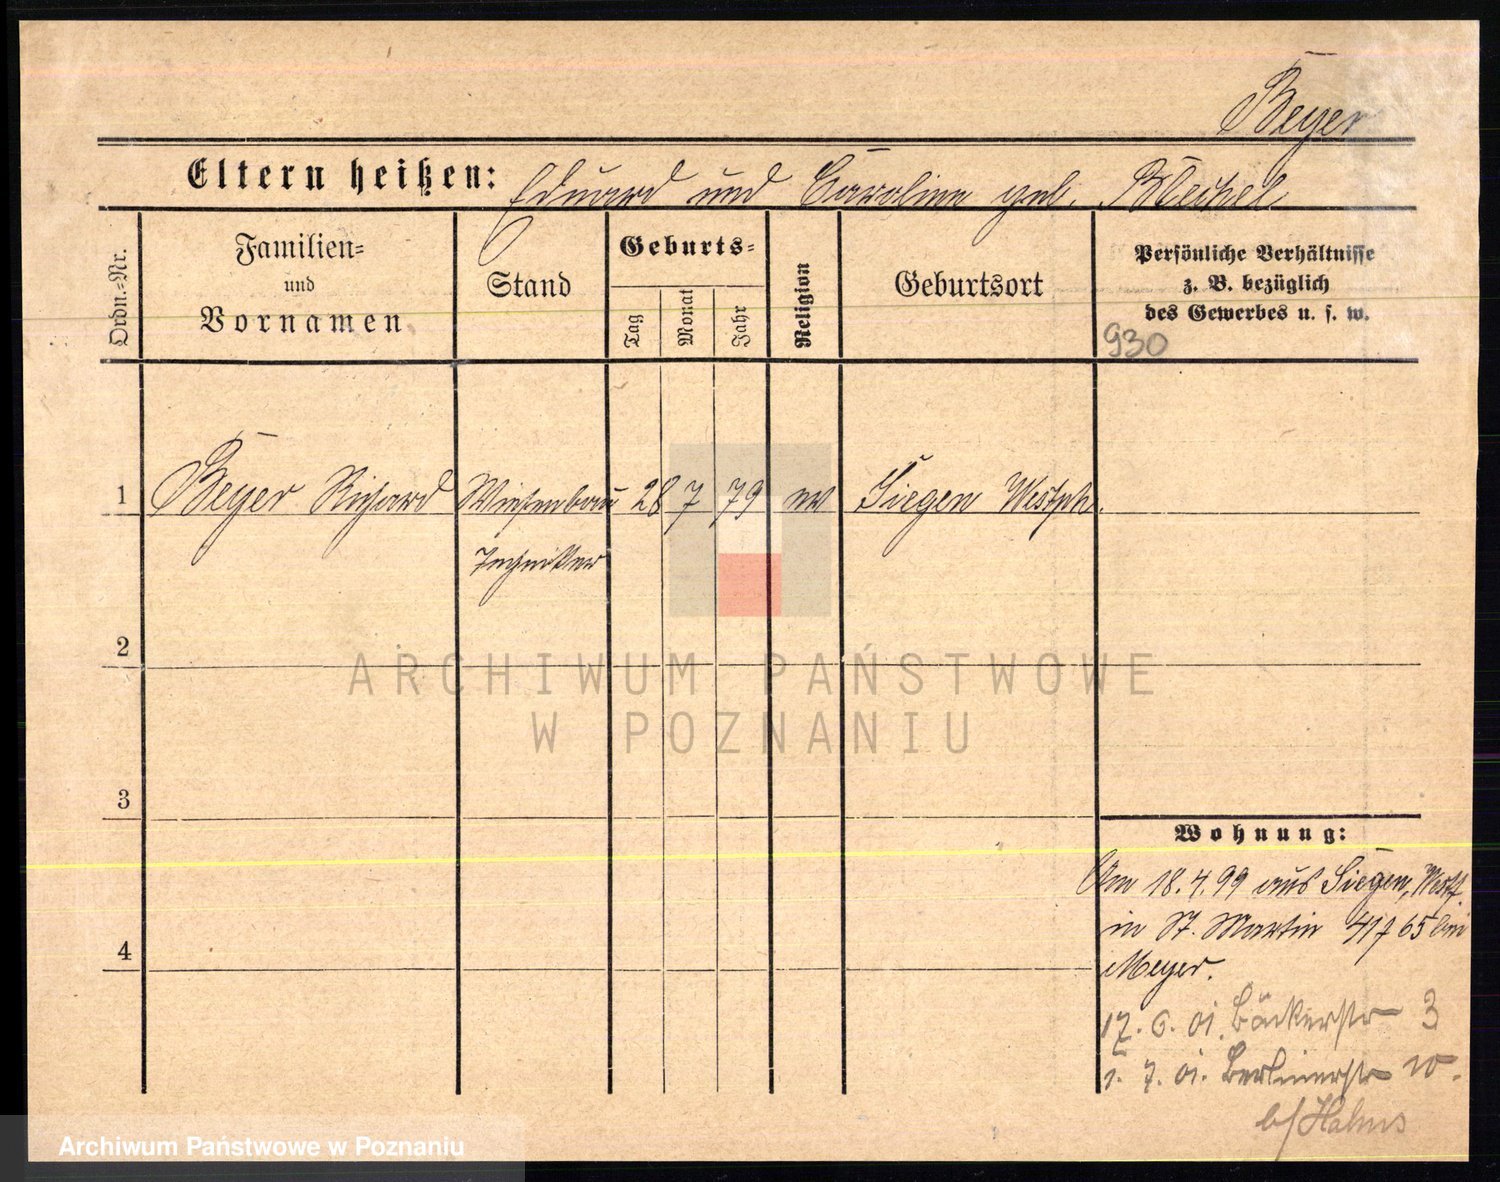 Beyer
Eltern heißen: Eduard und Caroline geb.
Ordn.-Nr.
Familien-
und
Vornamen
Stand
Geburts-
Tag
Monat
Jahr
Religion
Geburtsort
Persönliche Verhältnisse
z. B. bezüglich
des Gewerbes u. s. w.
930
1 Beyer Richard Wiesenbau 28 7 79 ev Siegen Westph.
Techniker
2
ARCHIWUM PAŃSTWOWE
W POZNANIU
3
Wohnung:
Am 18.4.99 aus Siegen, Westf.
in St. Martin bei
4
Meyer.
17. 6. 01. Bäckerstr 3
1. 7. 01. Berlinerstr 10.
b/ Hahns
Archiwum Państwowe w Poznaniu